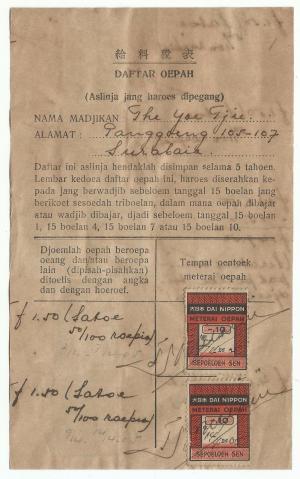 給料受表
DAFTAR OEPAH
(Aslinja jang haroes dipegang)
NAMA MADJIKAN The Yoe Tjie
ALAMAT: Panggoeng 105-107
Surabaia
Daftar ini aslinja hendaklah disimpan selama 5 tahoen.
Lembar kedoea daftar oepah ini, haroes diserahkan ke-
pada jang berwadjib sebeloem tanggal 15 boelan jang
berikoet sesoedah triboelan, dalam mana oepah dibajar
atau wadjib dibajar, djadi sebeloem tanggal 15 boelan
1, 15 boelan 4, 15 boelan 7 atau 15 boelan 10.
Djoemlah oepah beroepa
oeang dan/atau beroepa
lain (dipisah-pisahkan)
ditoelis dengan angka
dan dengan hoeroef.
Tempat oentoek
meterai oepah
f 1.50 (Satoe
50/100 roepia)
DAI NIPPON
METERAI OEPAH
10
SEPOELOEH SEN
f 1.50 (Satoe
50/100 roepia)
DAI NIPPON
METERAI OEPAH
10
SEPOELOEH SEN